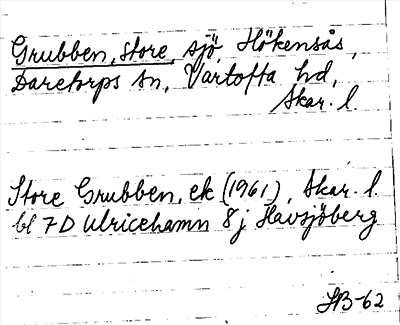 Grubben, store, sjö, Hökensås,
Daretorps sn, Vartofta hd,
Skar. l
Store Grubben, ek (1961), Skar. l.
bl 7D Ulricehamn 8j Havsjöberg
HB-62